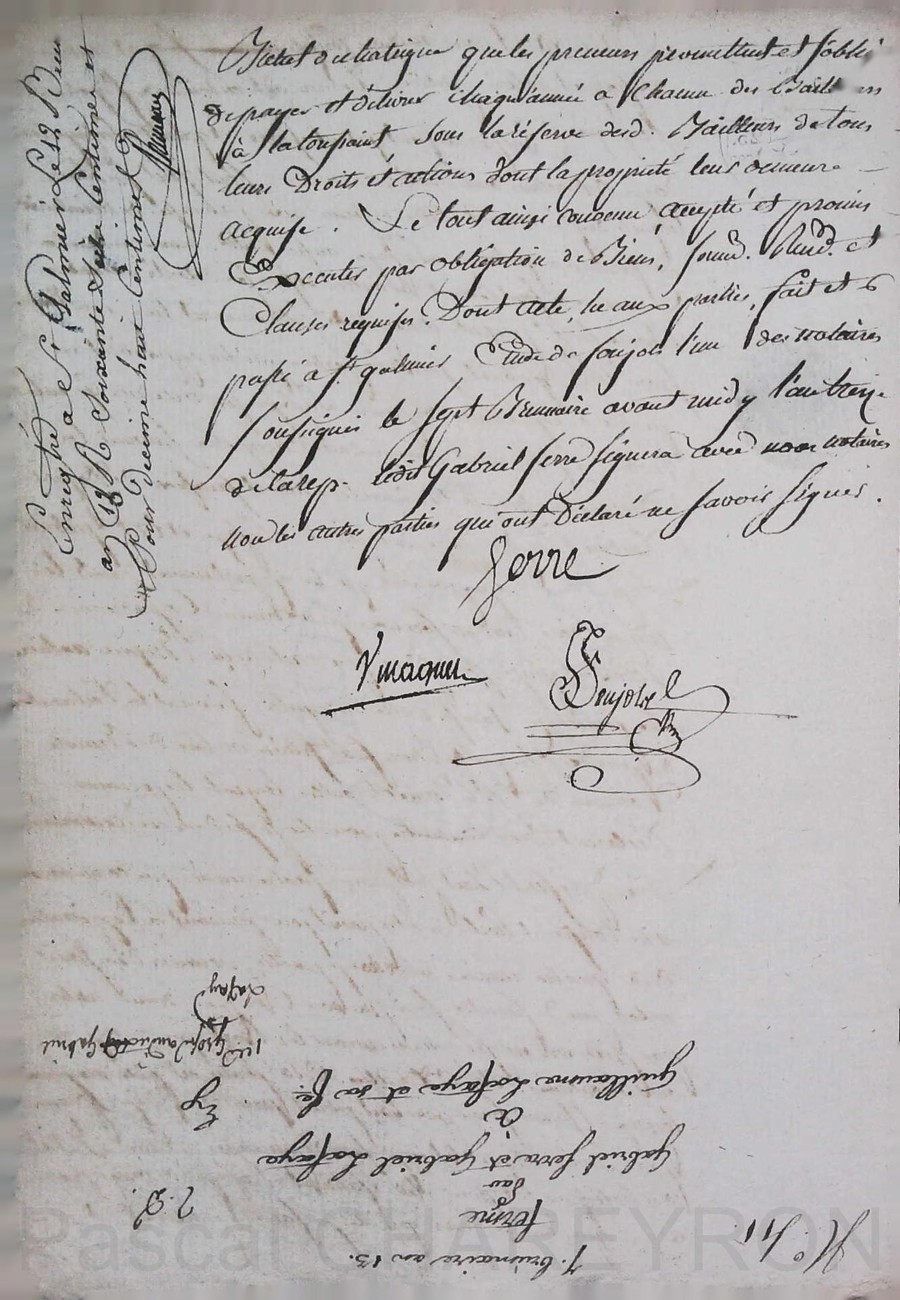 que les preneurs promettent et s'obli
de payer et délivrer chaqu'année a chacun des Baill
à la toussaint sous la réserve desd. Bailleurs de tous
leurs Droits et actions dont la propriété leur demeure
acquise. Le tout ainsi convenu accepté et promis
Executer par obligation de Biens, soumd. Rend. et
Clauses requises. Dont acte, lu aux parties, fait et
passé a St. galmier Etude de Soujols l'un des notaires
soussignés le sept Brumaire avant midy l'an treize
de la rep. ledit Gabriel Serre signera avec nous notaires
non les autres parties qui ont Déclaré ne savoir signer.
Serre
Soujols
Enregtré a St. Galmier Le 12 Brum
an 13 R Soixante centimes et
Pour Decime huit Centimes
7. brumaire an 13.
ferme
par
gabriel serre et gabriel Lafaye
à
guillaume Lafaye et sa fe.
Exp
1re Grosse audit Gabriel
Lafay
Pascal CHAREYRON